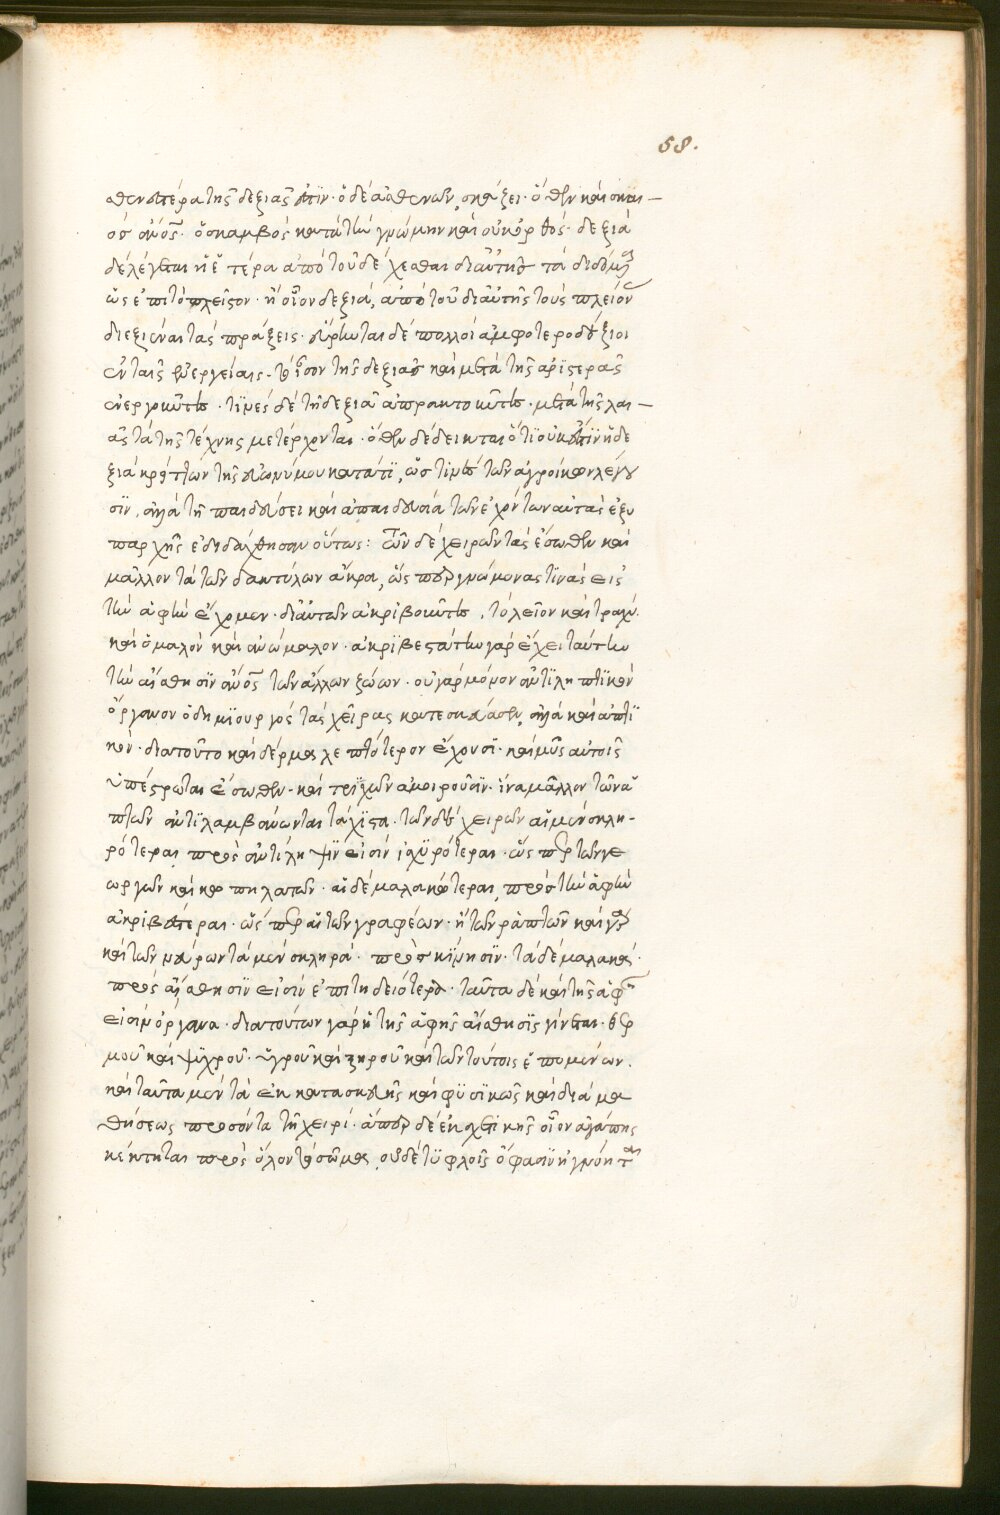 58.
θενεστέρα τῆς δεξιᾶς ἐστϊν· ὁ δὲ ἀσθενῶν, σκάζει· ὅθεν καὶ σκαι
ὸς ἄνος· ὁ σκαμβὸς κατὰ τὴν γνώμην καὶ οὐκ ὀρθός· δεξιὰ
δὲ λέγεται ἡ ἑτέρα ἀπὸ τοῦ δέχεσθαι δι αὐτῆς τὰ διδόμενα
ὡς ἐπιτοπλεῖστον· ἢ οἷον δεξιά, ἀπὸ τοῦ δι αὐτῆς τοὺς πλείον
διεξιέναι τὰς πράξεις· εὕρηνται δὲ πολλοὶ ἀμφοτεροδέξιοι
ἐν ταῖς ἐνεργείαις· τὸ ἴσον τῆς δεξιᾶς καὶ μετὰ τῆς ἀριστερᾶς
ἐνεργοῦντες· τϊνὲς δὲ τῇ δεξιᾷ ἀπρακτοῦντες· μετὰ τῆς λαι
ᾶς τὰ τῆς τέχνης μετέρχονται· ὅθεν δέδεικται ὅτϊ οὐκ ἔστϊν ἡ δε
ξιὰ κρείττων τῆς εὐωνύμου κατάτϊ, ὥς τϊνες τῶν ἀγροίκων λέγου
σϊν, ἀλλὰ τῇ παιδεύσει καὶ ἀπαιδευσία τῶν ἐχόντων αὐτὰς ἐξυ
παρχῆς ἐδιδάχθησαν οὕτως: Τῶν δὲ χειρῶν τὰς ἔσωθεν καὶ
μᾶλλον τὰ τῶν δακτύλων ἄκρα, ὥσπερ γνώμονας τϊνὰς εἰς
τὴν ἁφὴν ἔχομεν· δι αὐτῶν ἀκριβοῦντες, τὸ λεῖον καὶ τραχύ·
καὶ ὁμαλὸν καὶ ἀνώμαλον· ἀκρϊβεστάτην γὰρ ἔχει ταύτην
τὴν αἴσθησϊν ἄνος τῶν ἄλλων ζώων· οὐ γὰρ μόνον ἀντϊληπτϊκὸν
ὄργανον ὁ δημϊουργὸς τὰς χεῖρας κατεσκεύασεν, ἀλλὰ καὶ ἁπτϊ
κόν· διατοῦτο καὶ δέρμα λεπτότερον ἔχουσϊ· καὶ μῦς αὐτοῖς
ὑπέστρωται ἔσωθεν· καὶ τρϊχῶν ἀμοιροῦσϊν· ἵνα μᾶλλον τῶν ἁ
πτῶν ἀντϊλαμβάνωνται τάχϊστα· τῶν δὲ χειρῶν αἱ μὲν σκλη-
ρότεραι πρὸς ἀντίληψϊν εἰσὶν ἰσχϋρότεραι· ὥσπερ τῶν γε
ωργῶν καὶ κωπηλατῶν· αἱ δὲ μαλακώτεραι, πρὸς τὴν ἁφὴν
ἀκριβέστεραι· ὥσπερ αἱ τῶν γραφέων· ἢ τῶν ῥαπτῶν καὶ γὰρ
καὶ τῶν νεύρων τὰ μὲν σκληρά· πρὸς κίνησϊν· τὰ δὲ μαλακά·
πρὸς αἴσθησϊν εἰσὶν ἐπιτηδειότερα· ταῦτα δὲ καὶ τῆς ἁφῆς
εἰσὶν ὄργανα· διὰ τούτων γὰρ ἡ τῆς ἁφῆς αἴσθησϊς γίνεται· θερ
μοῦ καὶ ψϋχροῦ· ὑγροῦ καὶ ξηροῦ καὶ τῶν τούτοις ἑπομένων.
καὶ ταῦτα μὲν τὰ ἐκ κατασκευῆς καὶ φϋσϊκῶς καὶ διὰ μα
θήσεως προσόντα τῇ χειρί· ἅπερ δὲ ἐν σχετικῆς οἷον ἀγάπης
κέκτηται πρὸς ὅλον τὸ σῶμα, οὐδὲ τϋφλοῖς ὅ φασϊν ἠγνόηται